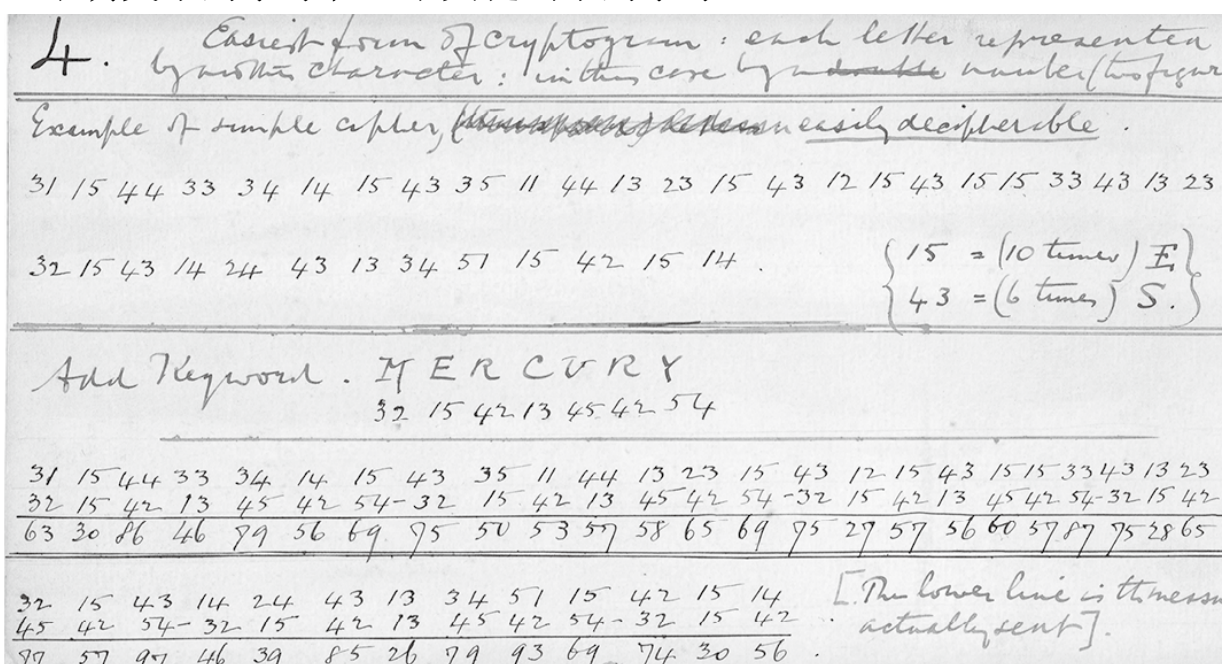 4. Easiest form of cryptogram : each letter represented
by another character : in this case by a double number (two figur
Example of simple cipher, easily decipherable .
31 15 44 33 34 14 15 43 35 11 44 13 23 15 43 12 15 43 15 15 33 43 13 23
32 15 43 14 24 43 13 34 51 15 42 15 14 .
15 = (10 times) E
43 = (6 times) S.
Add Keyword . M E R C U R Y
32 15 42 13 45 42 54
31 15 44 33 34 14 15 43 35 11 44 13 23 15 43 12 15 43 15 15 33 43 13 23
32 15 42 13 45 42 54-32 15 42 13 45 42 54-32 15 42 13 45 42 54-32 15 42
63 30 86 46 79 56 69 75 50 53 57 58 65 69 75 27 57 56 60 57 87 75 28 65
32 15 43 14 24 43 13 34 51 15 42 15 14
45 42 54-32 15 42 13 45 42 54-32 15 42 .
77 57 97 46 39 85 26 79 93 69 74 30 56 .
[The lower line is the
actually sent].